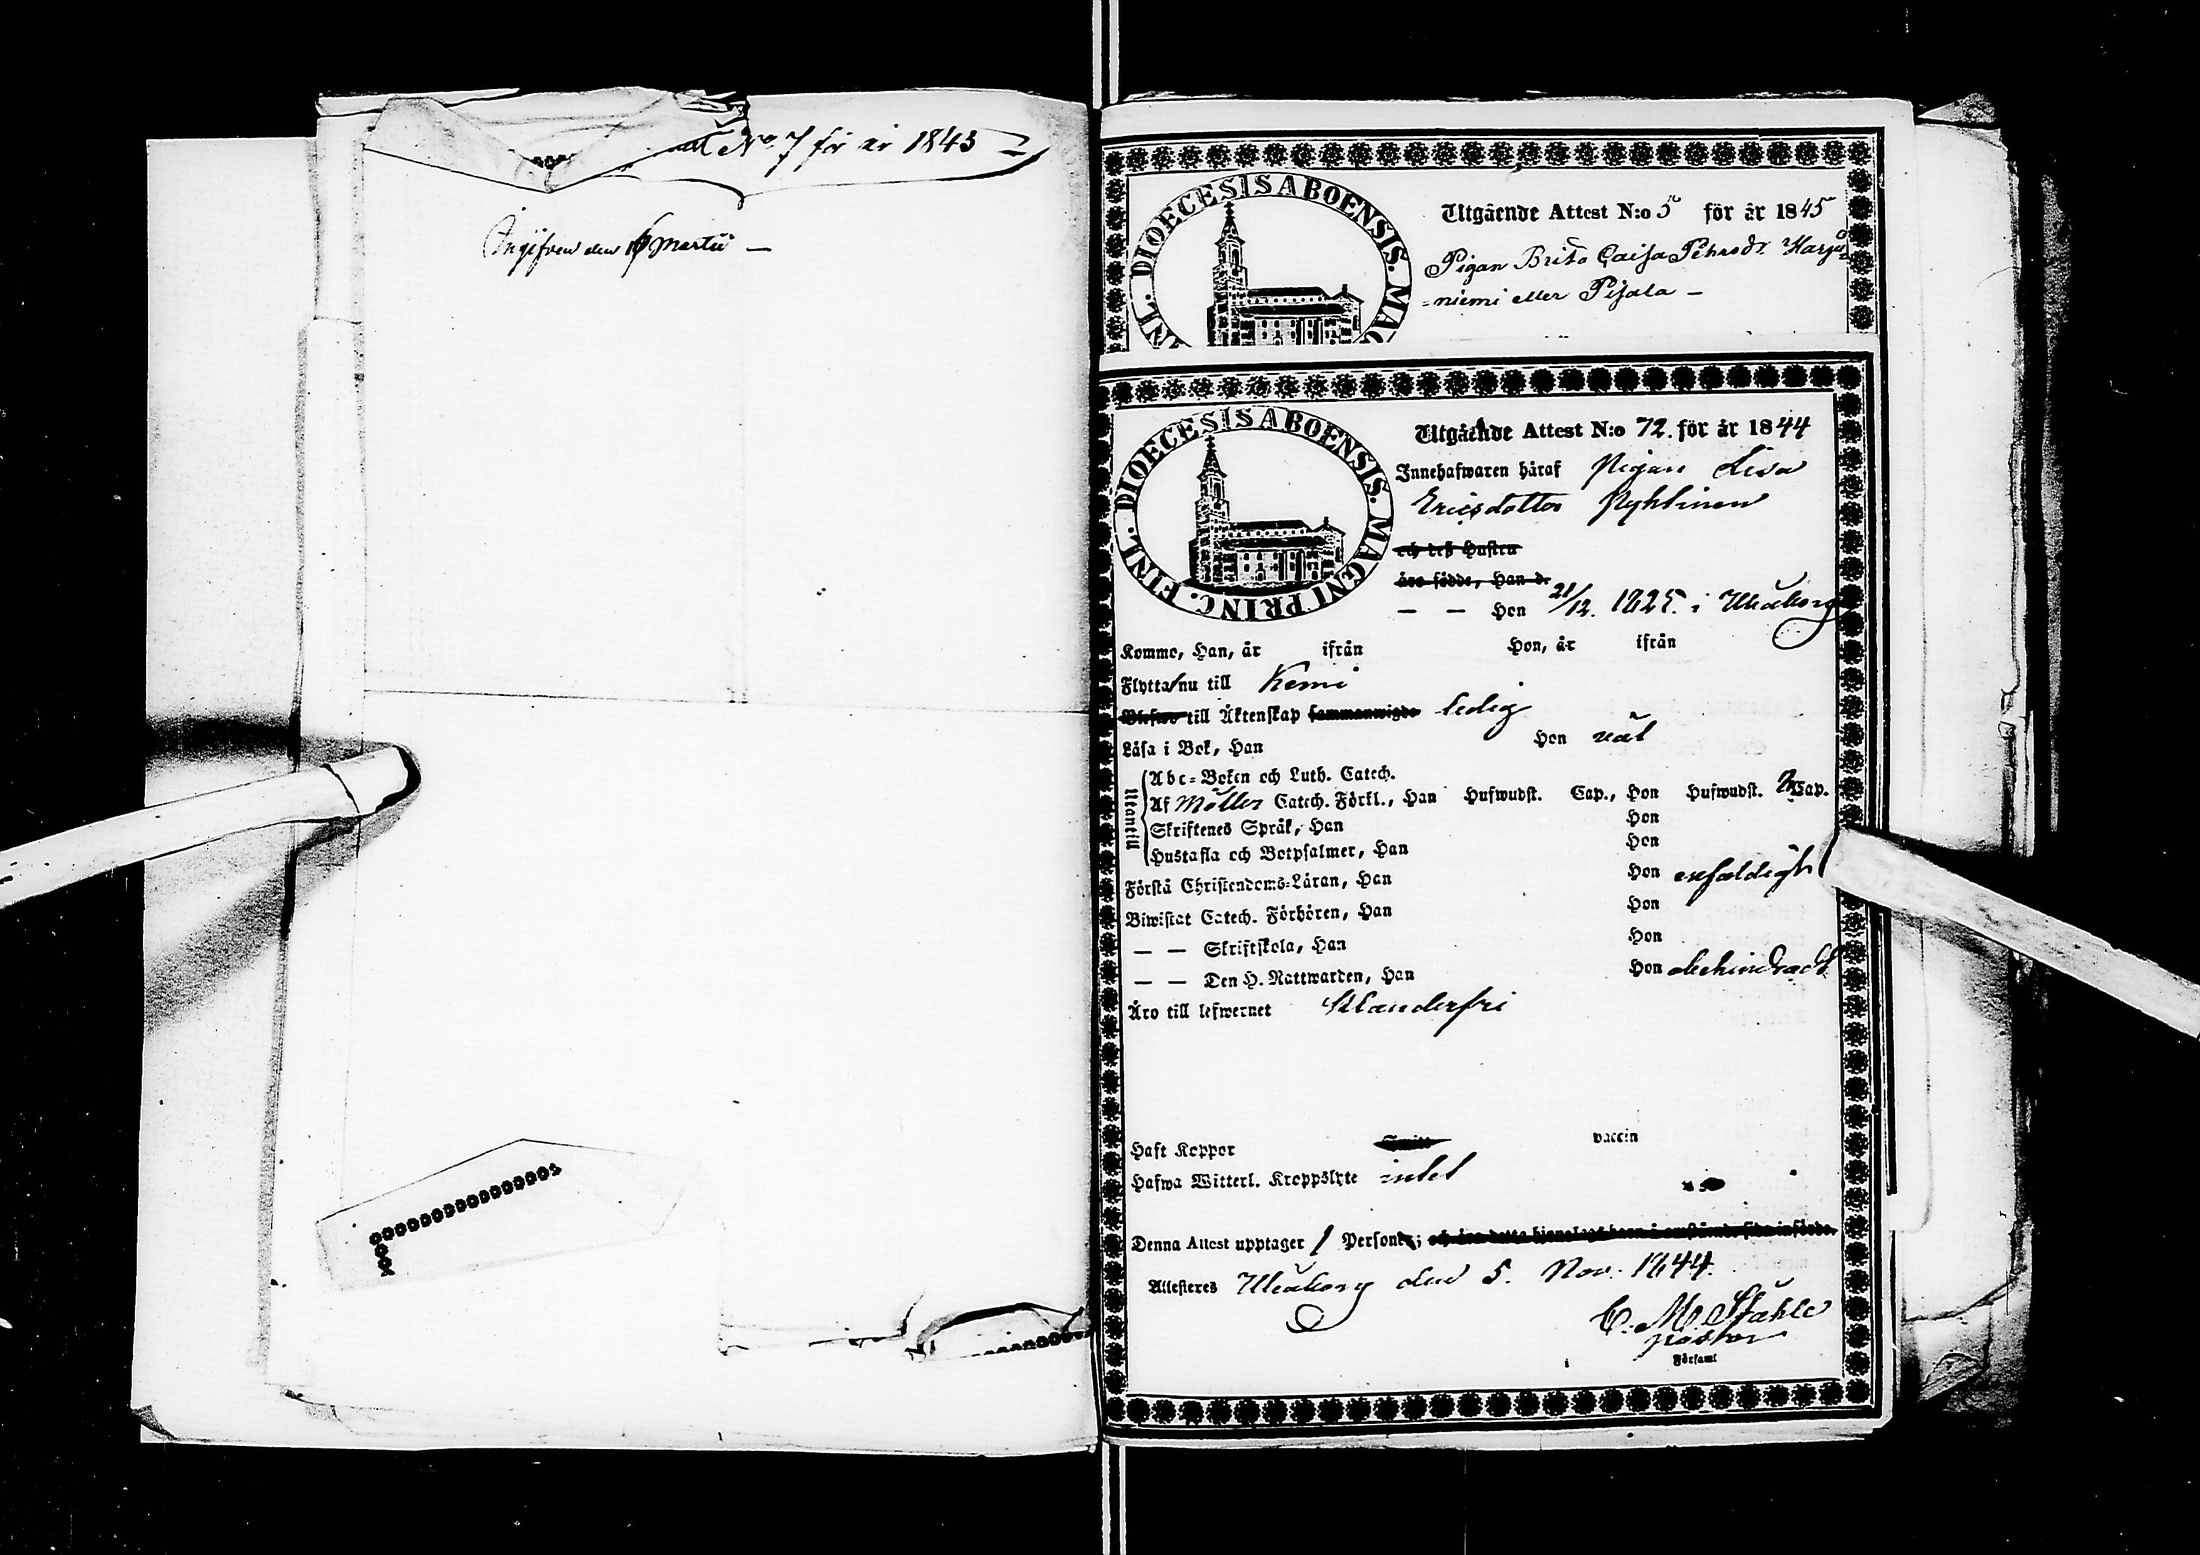 N:o 7 för år 1845
Ingifven den 16 Martii —
DIOECESIS ABOENSIS. MAG
Utgående Attest N:o 5 för år 1845
Pigan Brita Caisa Pehrsdr Harju
=niemi eller Pisala —
DIOECESIS ABOENSIS. MAGNI PRINC. FINL.
Utgående Attest N:o 72. för år 1844
Innehafwaren häraf Pigan Lisa
Ericsdotter Pyhtinen
och deß Hustru
äro födde, Han d.
— — Hon 21/12. 1825. i Uleåborg
Komme, Han, år ifrån Hon, år ifrån
Flytta nu till Kemi
till Äktenskap sammanwigde ledig
Läsa i Bok, Han Hon wäl
Utantill
Abc-Boken och Luth. Catech.
Af Möller Catech. Förkl., Han Hufwudst. Cap., Hon Hufwudst. Cap.
Skriftenes Språk, Han Hon
Hustafla och Botpsalmer, Han Hon
Förstå Christendoms-Läran, Han Hon enfaldigt
Biwistat Catech. Förhören, Han Hon
— — Skriftskola, Han Hon
— — Den H. Nattwarden, Han Hon obehindradt
Äro till lefwernet Klanderfri
Haft Koppor vaccin
Hafwa Witterl. Kroppslyte intet
Denna Attest upptager 1 Person;
Attesteres Uleåborg den 5. Nov. 1844.
C. M. Ståhle
pastor
Församl